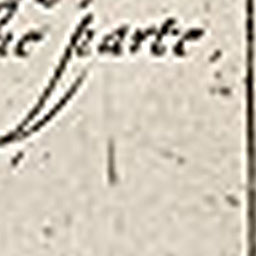 he parte,